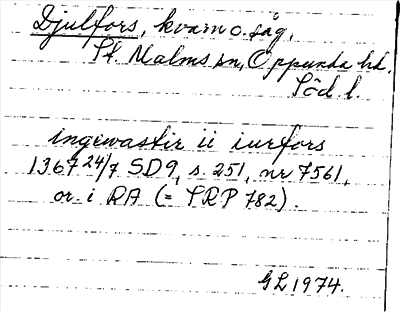 Djulfors, kvarn o. såg,
St. Malms sn, Oppunda hd.
Söd l.
ingewastir ii iurfors
1367 24/7 SD9, s. 251, nr 7561,
or. i RA (= SRP 782).
GL 1974.